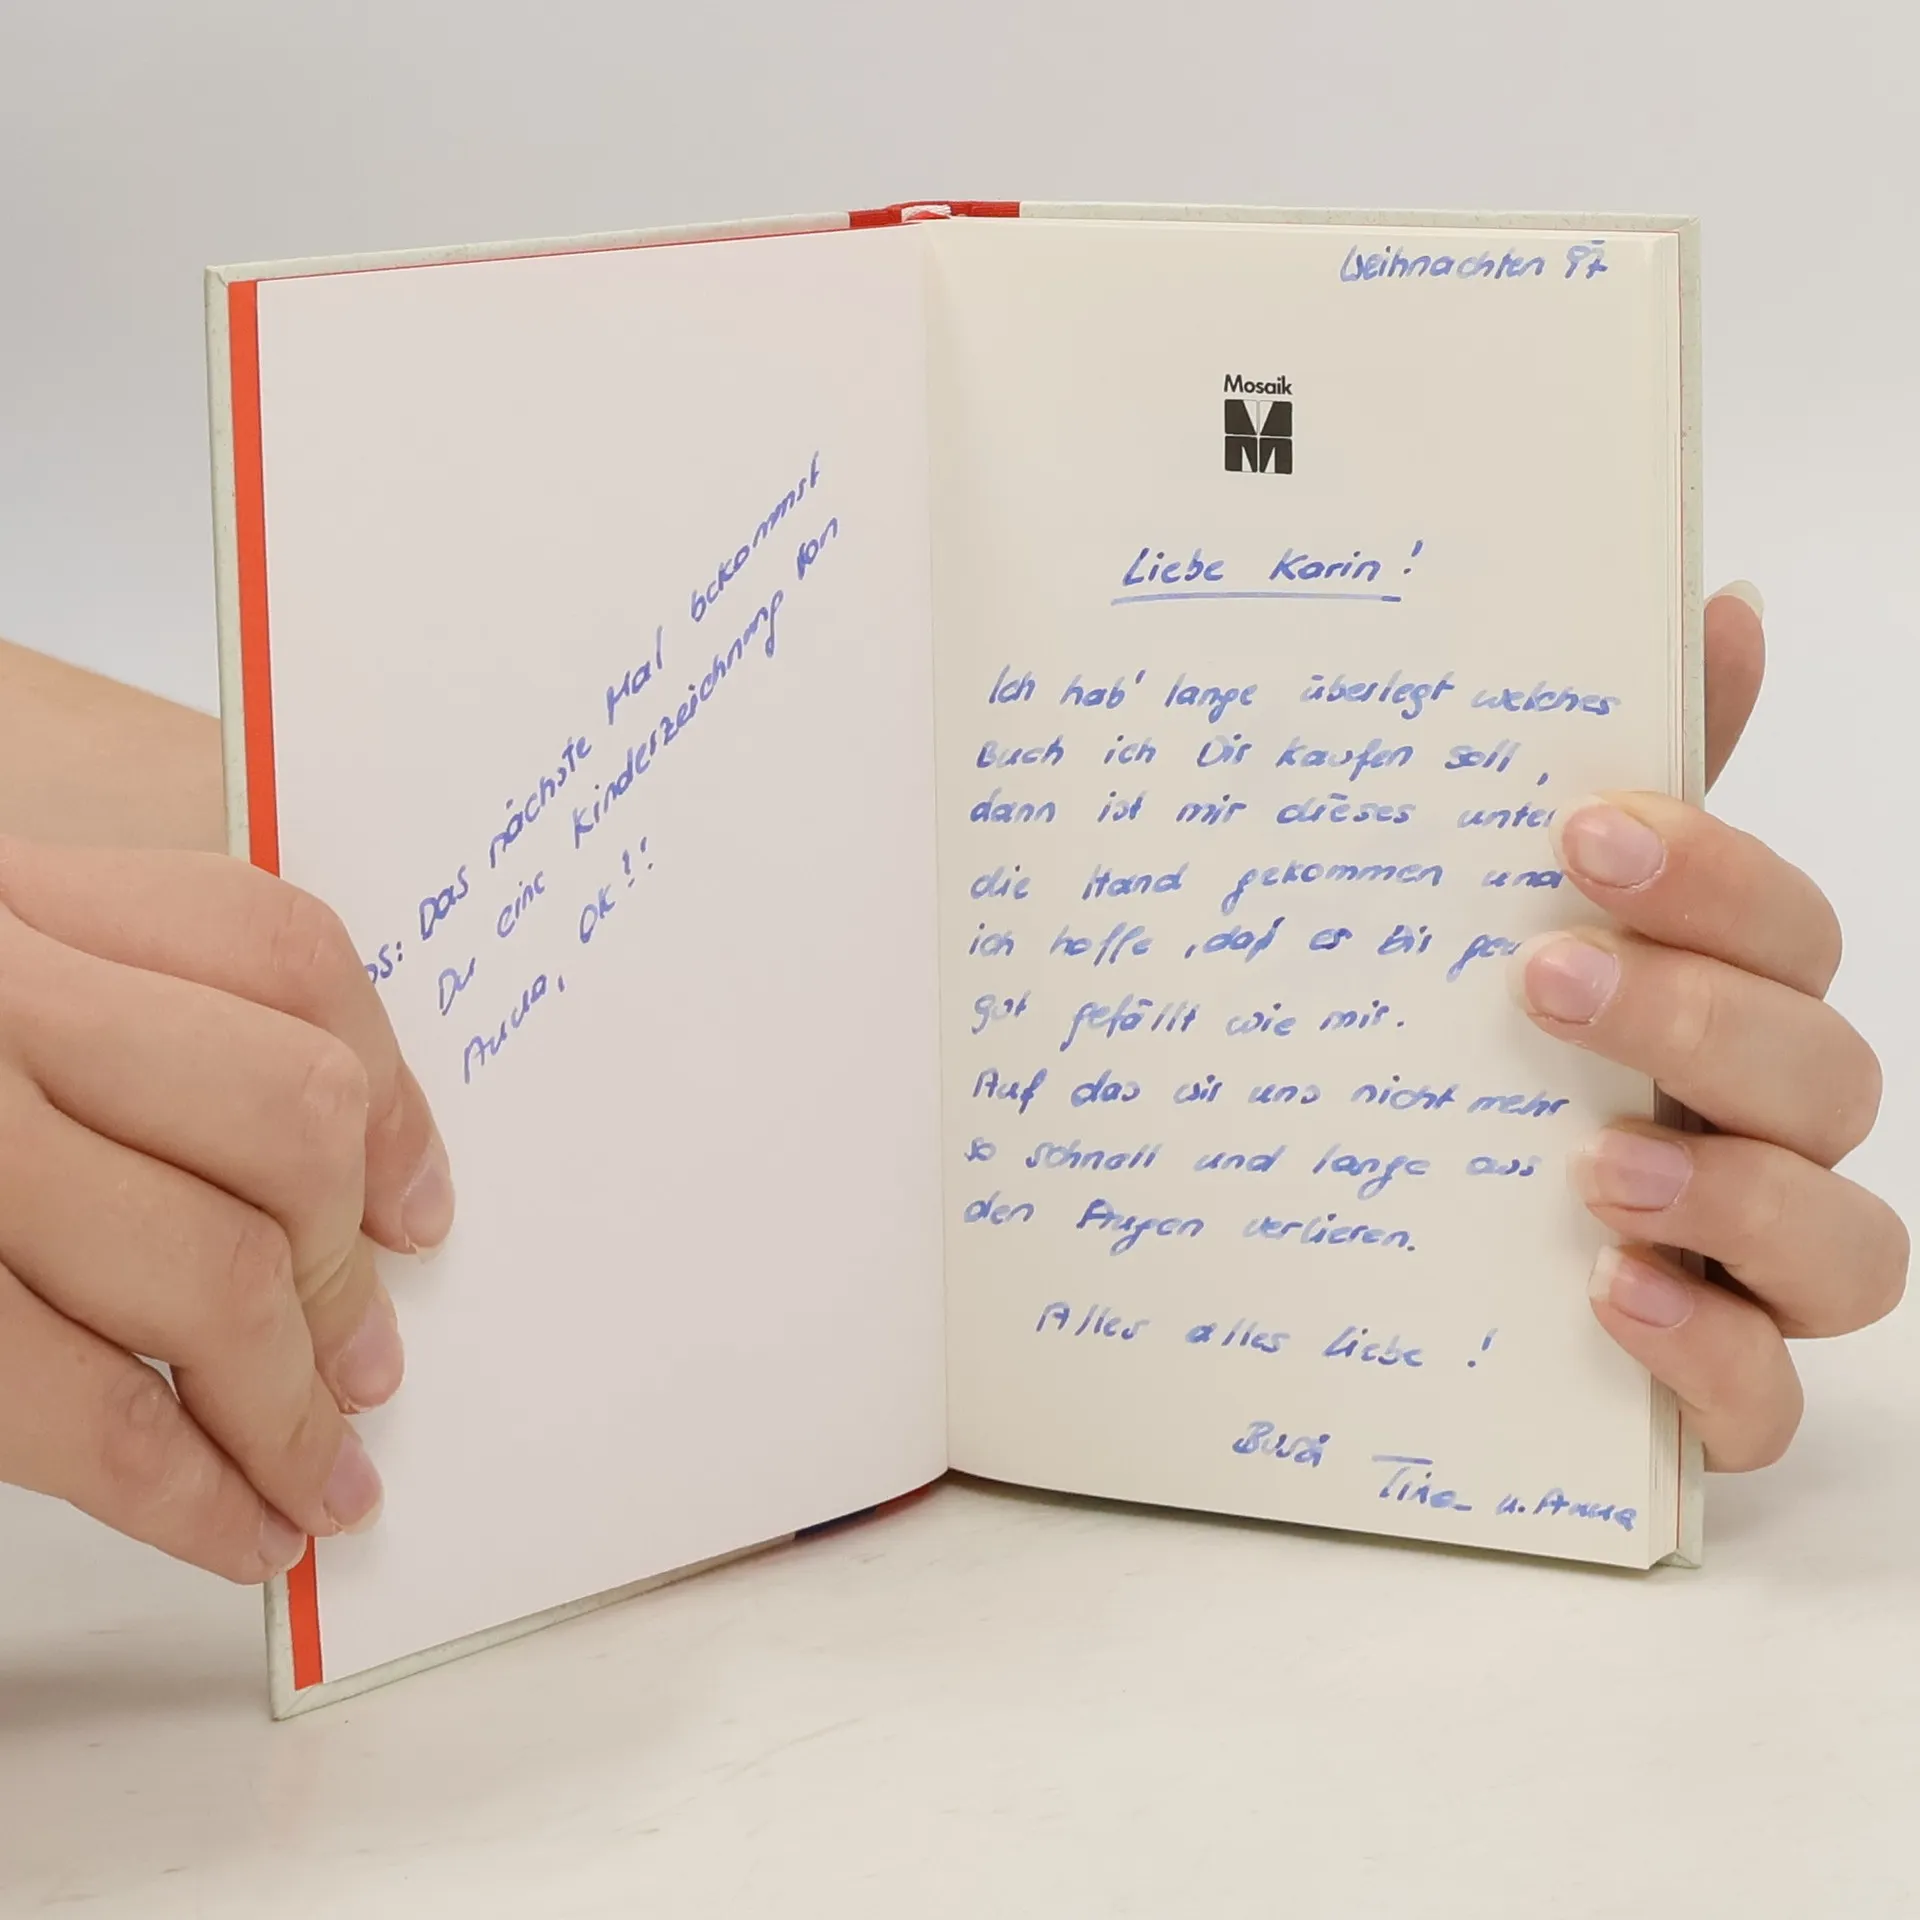 PS: Das nächste Mal bekommst
Du eine Kinderzeichnung von
Anna, OK!!
Weihnachten 97
Mosaik
Liebe Karin!
Ich hab' lange überlegt welches
Buch ich Dir kaufen soll,
dann ist mir dieses unter
die Hand gekommen und
ich hoffe, daß es Dir
gut gefällt wie mir.
Auf das wir uns nicht mehr
so schnell und lange aus
den Augen verlieren.
Alles alles Liebe!
Bussi
Tina u. Anna